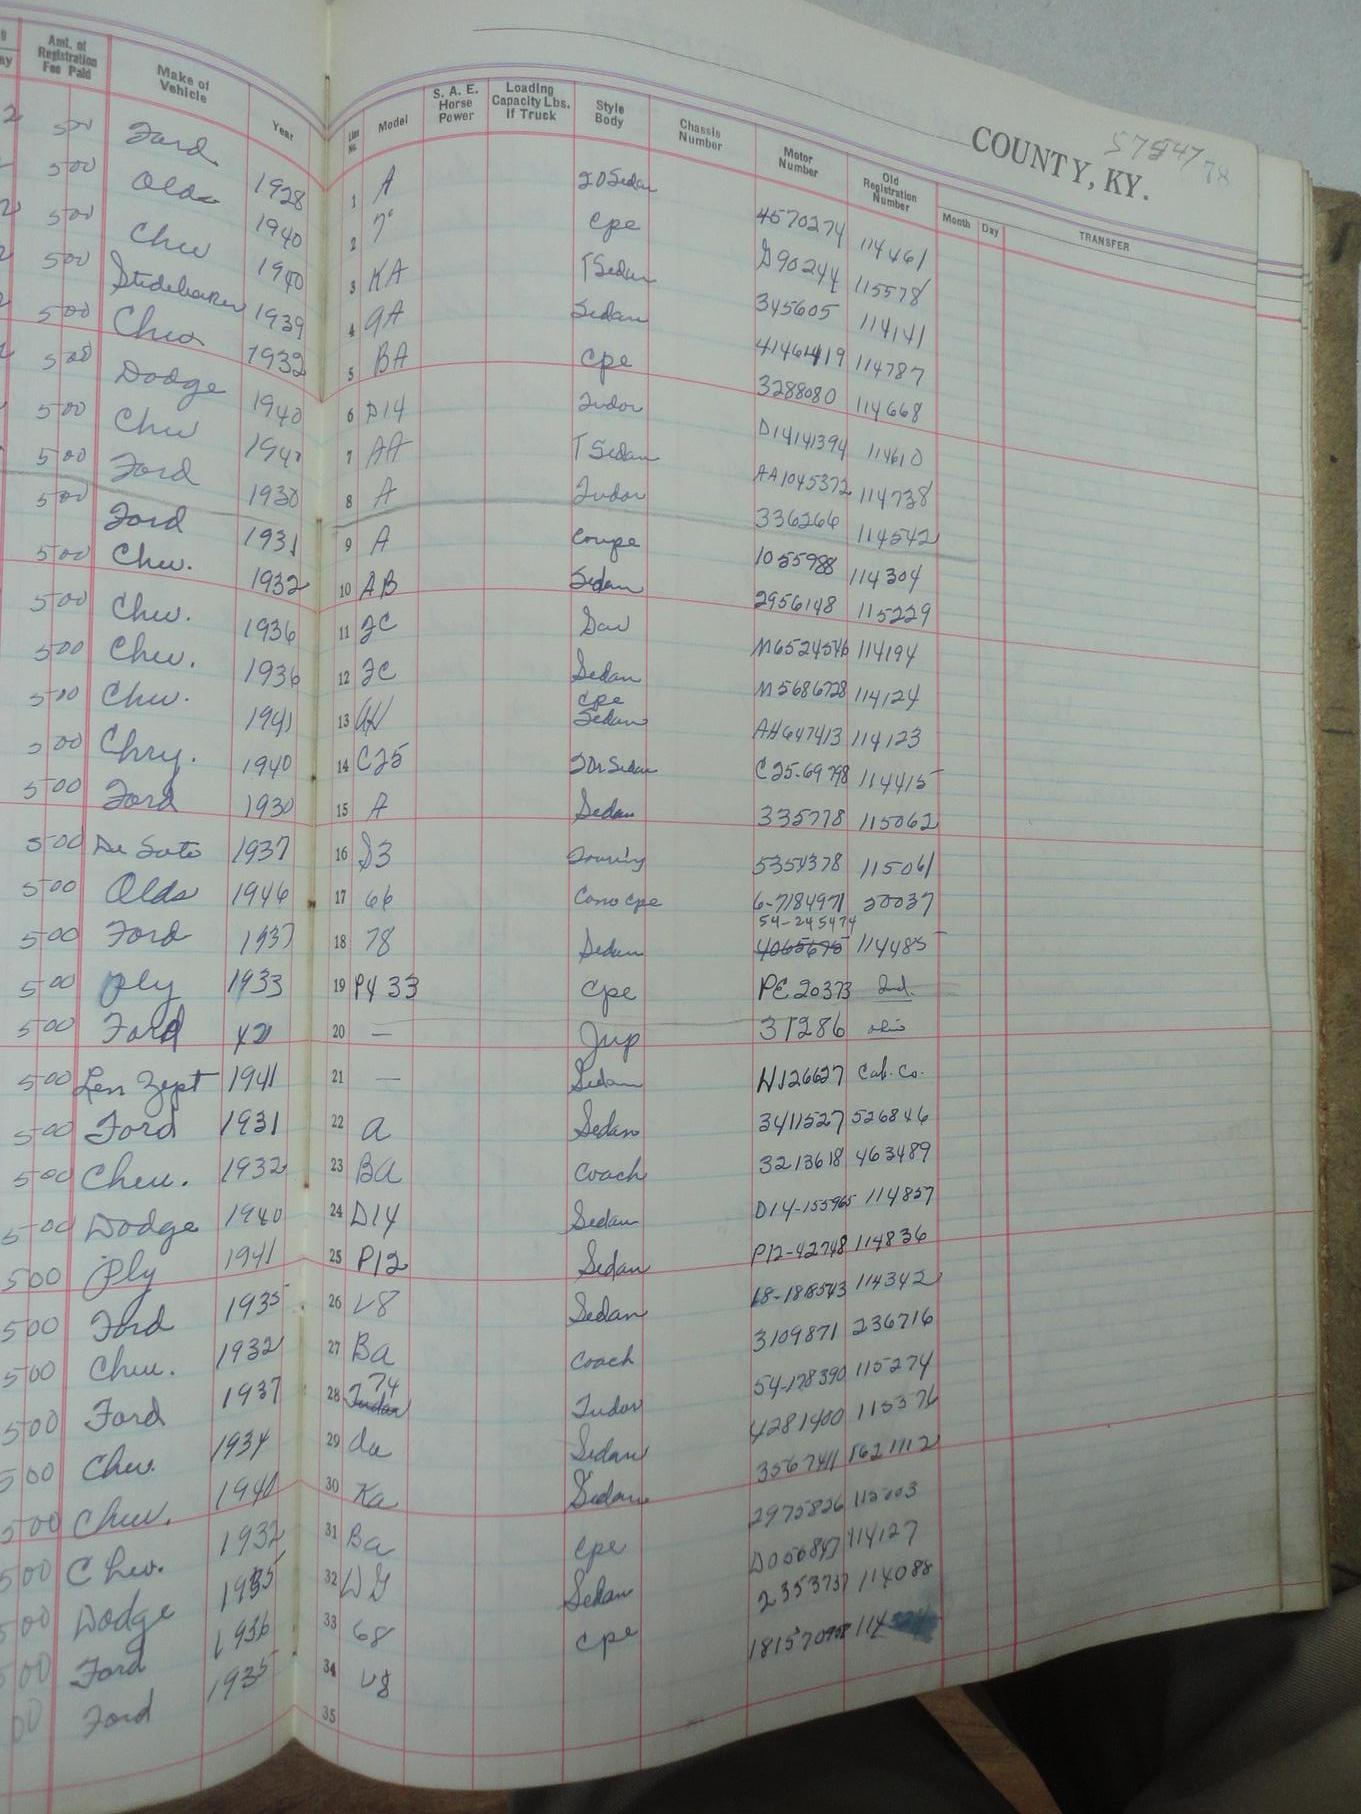 Amt. of Registration Fee Paid Make of Vehicle Year Line No. Model S. A. E. Horse Power Loading Capacity Lbs. If Truck Style Body Chassis Number Motor Number Old Registration Number Month Day TRANSFER
COUNTY, KY. 78
500 Ford 1928 1 A 2DSedan 4570274 114461
500 Olds 1940 2 7° Cpe G90244 115578
500 Chev 1940 3 KA TSedan 345605 114141
500 Studebaker 1939 4 9A Sedan 114787
500 Chev 1932 5 BA Cpe 3288080 114668
500 Dodge 1940 6 D14 Tudor D14141394 114610
500 Chev 7 AA T Sedan AA1045372 114738
500 Ford 1930 8 A Tudor 336266 114542
500 Ford 1931 9 A Coupe 1055988 114304
500 Chev. 1932 10 AB Sedan 2956148 115229
500 Chev. 1936 11 FC M6524546 114194
500 Chev. 1936 12 FC Sedan M5686728 114124
500 Chev. 1941 13 Cpe Sedan AH647413 114123
500 Chry. 1940 14 C25 2Dr Sedan C25-69798 114415
500 Ford 1930 15 A Sedan 335778 115062
500 De Soto 1937 16 S3 Touring 5354378 115061
500 Olds 1946 17 66 Conv cpe 6-7184971 20037
500 Ford 1937 18 78 Sedan 54-245474 4065675 114485
500 Ply 1933 19 Cpe PE20373 Ind.
500 Ford 42 20 — Jeep 31286 ohio
500 Len Zept 1941 21 — Sedan H126627 Cab. Co.
500 Ford 1931 22 a Sedan 3411527 526846
500 Chev. 1932 23 Ba Coach 3213618 463489
500 Dodge 1940 24 D14 Sedan D14-155965 114857
500 Ply 1941 25 P12 Sedan P12-42748 114836
500 Ford 1935 26 V8 Sedan 18-1818543 114342
500 Chev. 1932 27 Ba Coach 3109871 236716
500 Ford 1937 28 74 Tudor Tudor 54-178390 115274
500 Chev. 1934 29 da Sedan 4281400 115376
500 Chev. 1940 30 Ka Sedan 3567411 1621112
500 Chev. 1932 31 Ba Cpe 2975826
500 Dodge 1935 32 Sedan D056847 114127
500 Ford 1936 33 68 Cpe 2353737 114088
00 Ford 1935 34 V8 114
35